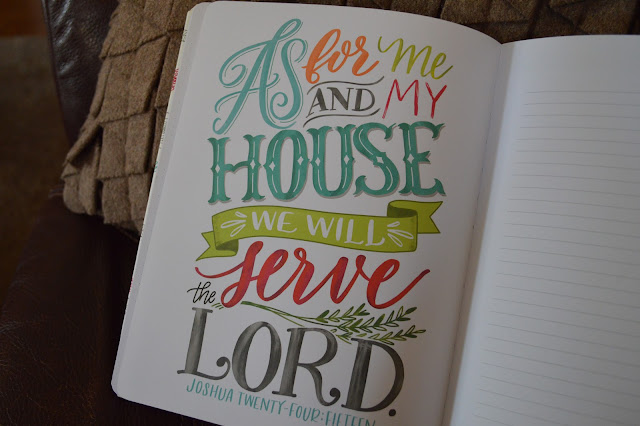 AS for me
AND MY
HOUSE
WE WILL
serve
the
LORD.
JOSHUA TWENTY-FOUR:FIFTEEN